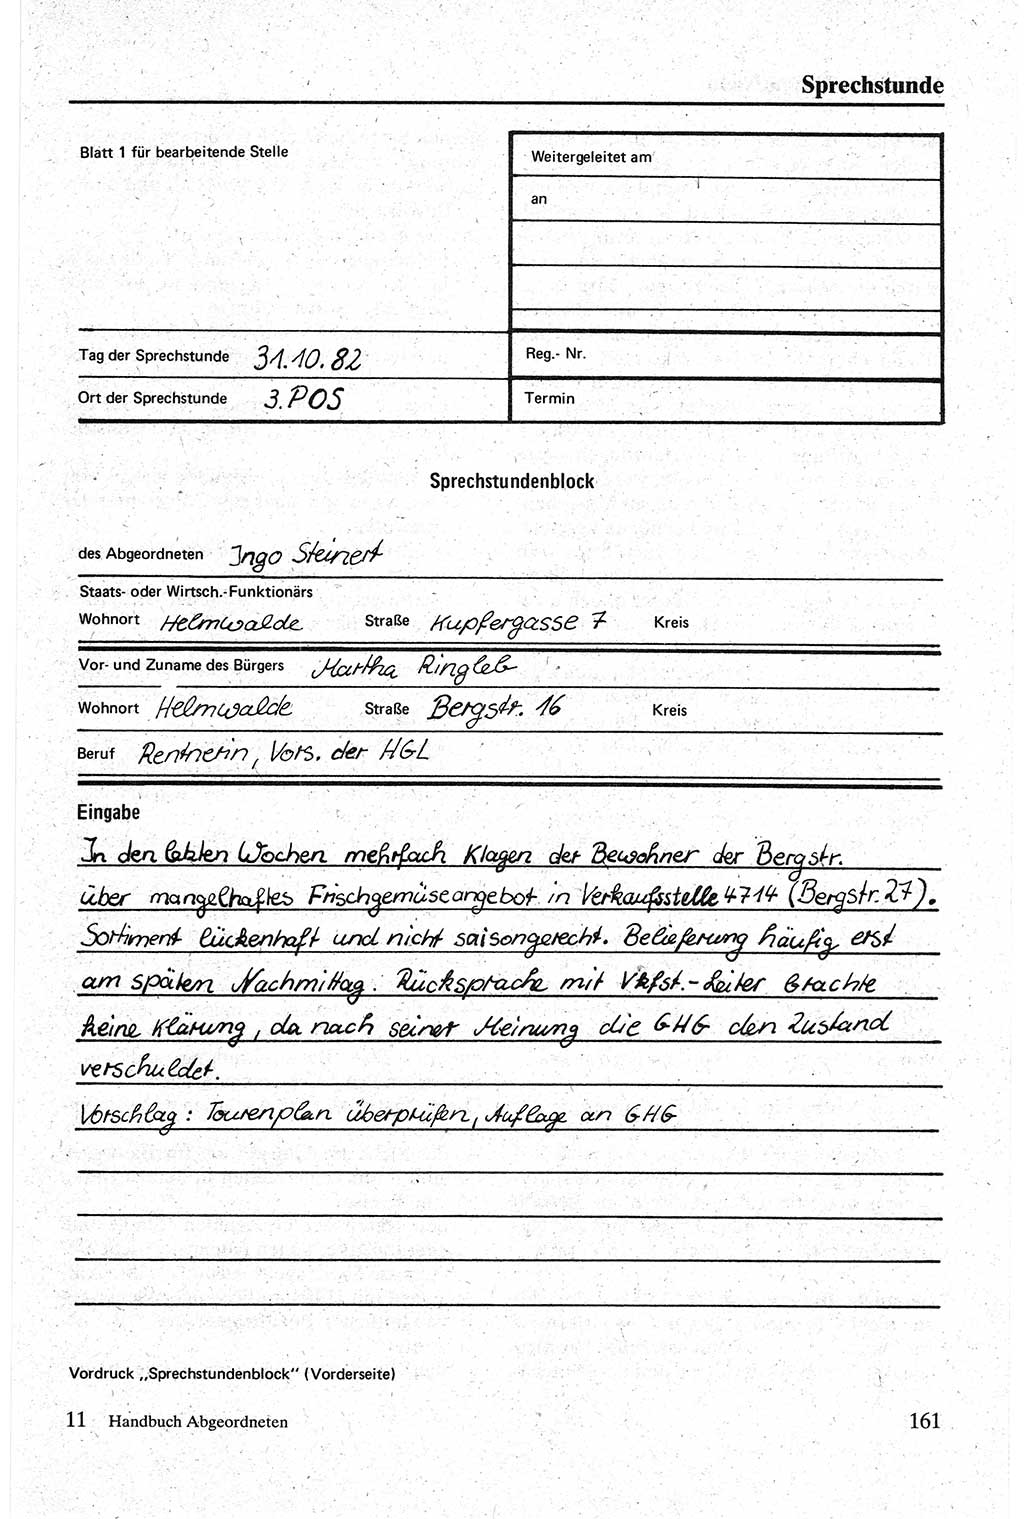 Sprechstunde
Blatt 1 für bearbeitende Stelle
Weitergeleitet am
an
Tag der Sprechstunde 31.10.82
Reg.- Nr.
Ort der Sprechstunde 3. POS
Termin
Sprechstundenblock
des Abgeordneten Ingo Steinert
Staats- oder Wirtsch.-Funktionärs
Wohnort Helmwalde Straße Kupfergasse 7 Kreis
Vor- und Zuname des Bürgers Martha Ringleb
Wohnort Helmwalde Straße Bergstr. 16 Kreis
Beruf Rentnerin, Vors. der HGL
Eingabe
In den letzten Wochen mehrfach Klagen der Bewohner der Bergstr.
über mangelhaftes Frischgemüseangebot in Verkaufsstelle 4714 (Bergstr. 27).
Sortiment lückenhaft und nicht saisongerecht. Belieferung häufig erst
am späten Nachmittag. Rücksprache mit Vkfst.-Leiter brachte
keine Klärung, da nach seiner Meinung die GHG den Zustand
verschuldet.
Vorschlag: Tourenplan überprüfen, Auflage an GHG
Vordruck „Sprechstundenblock“ (Vorderseite)
11 Handbuch Abgeordneten
161